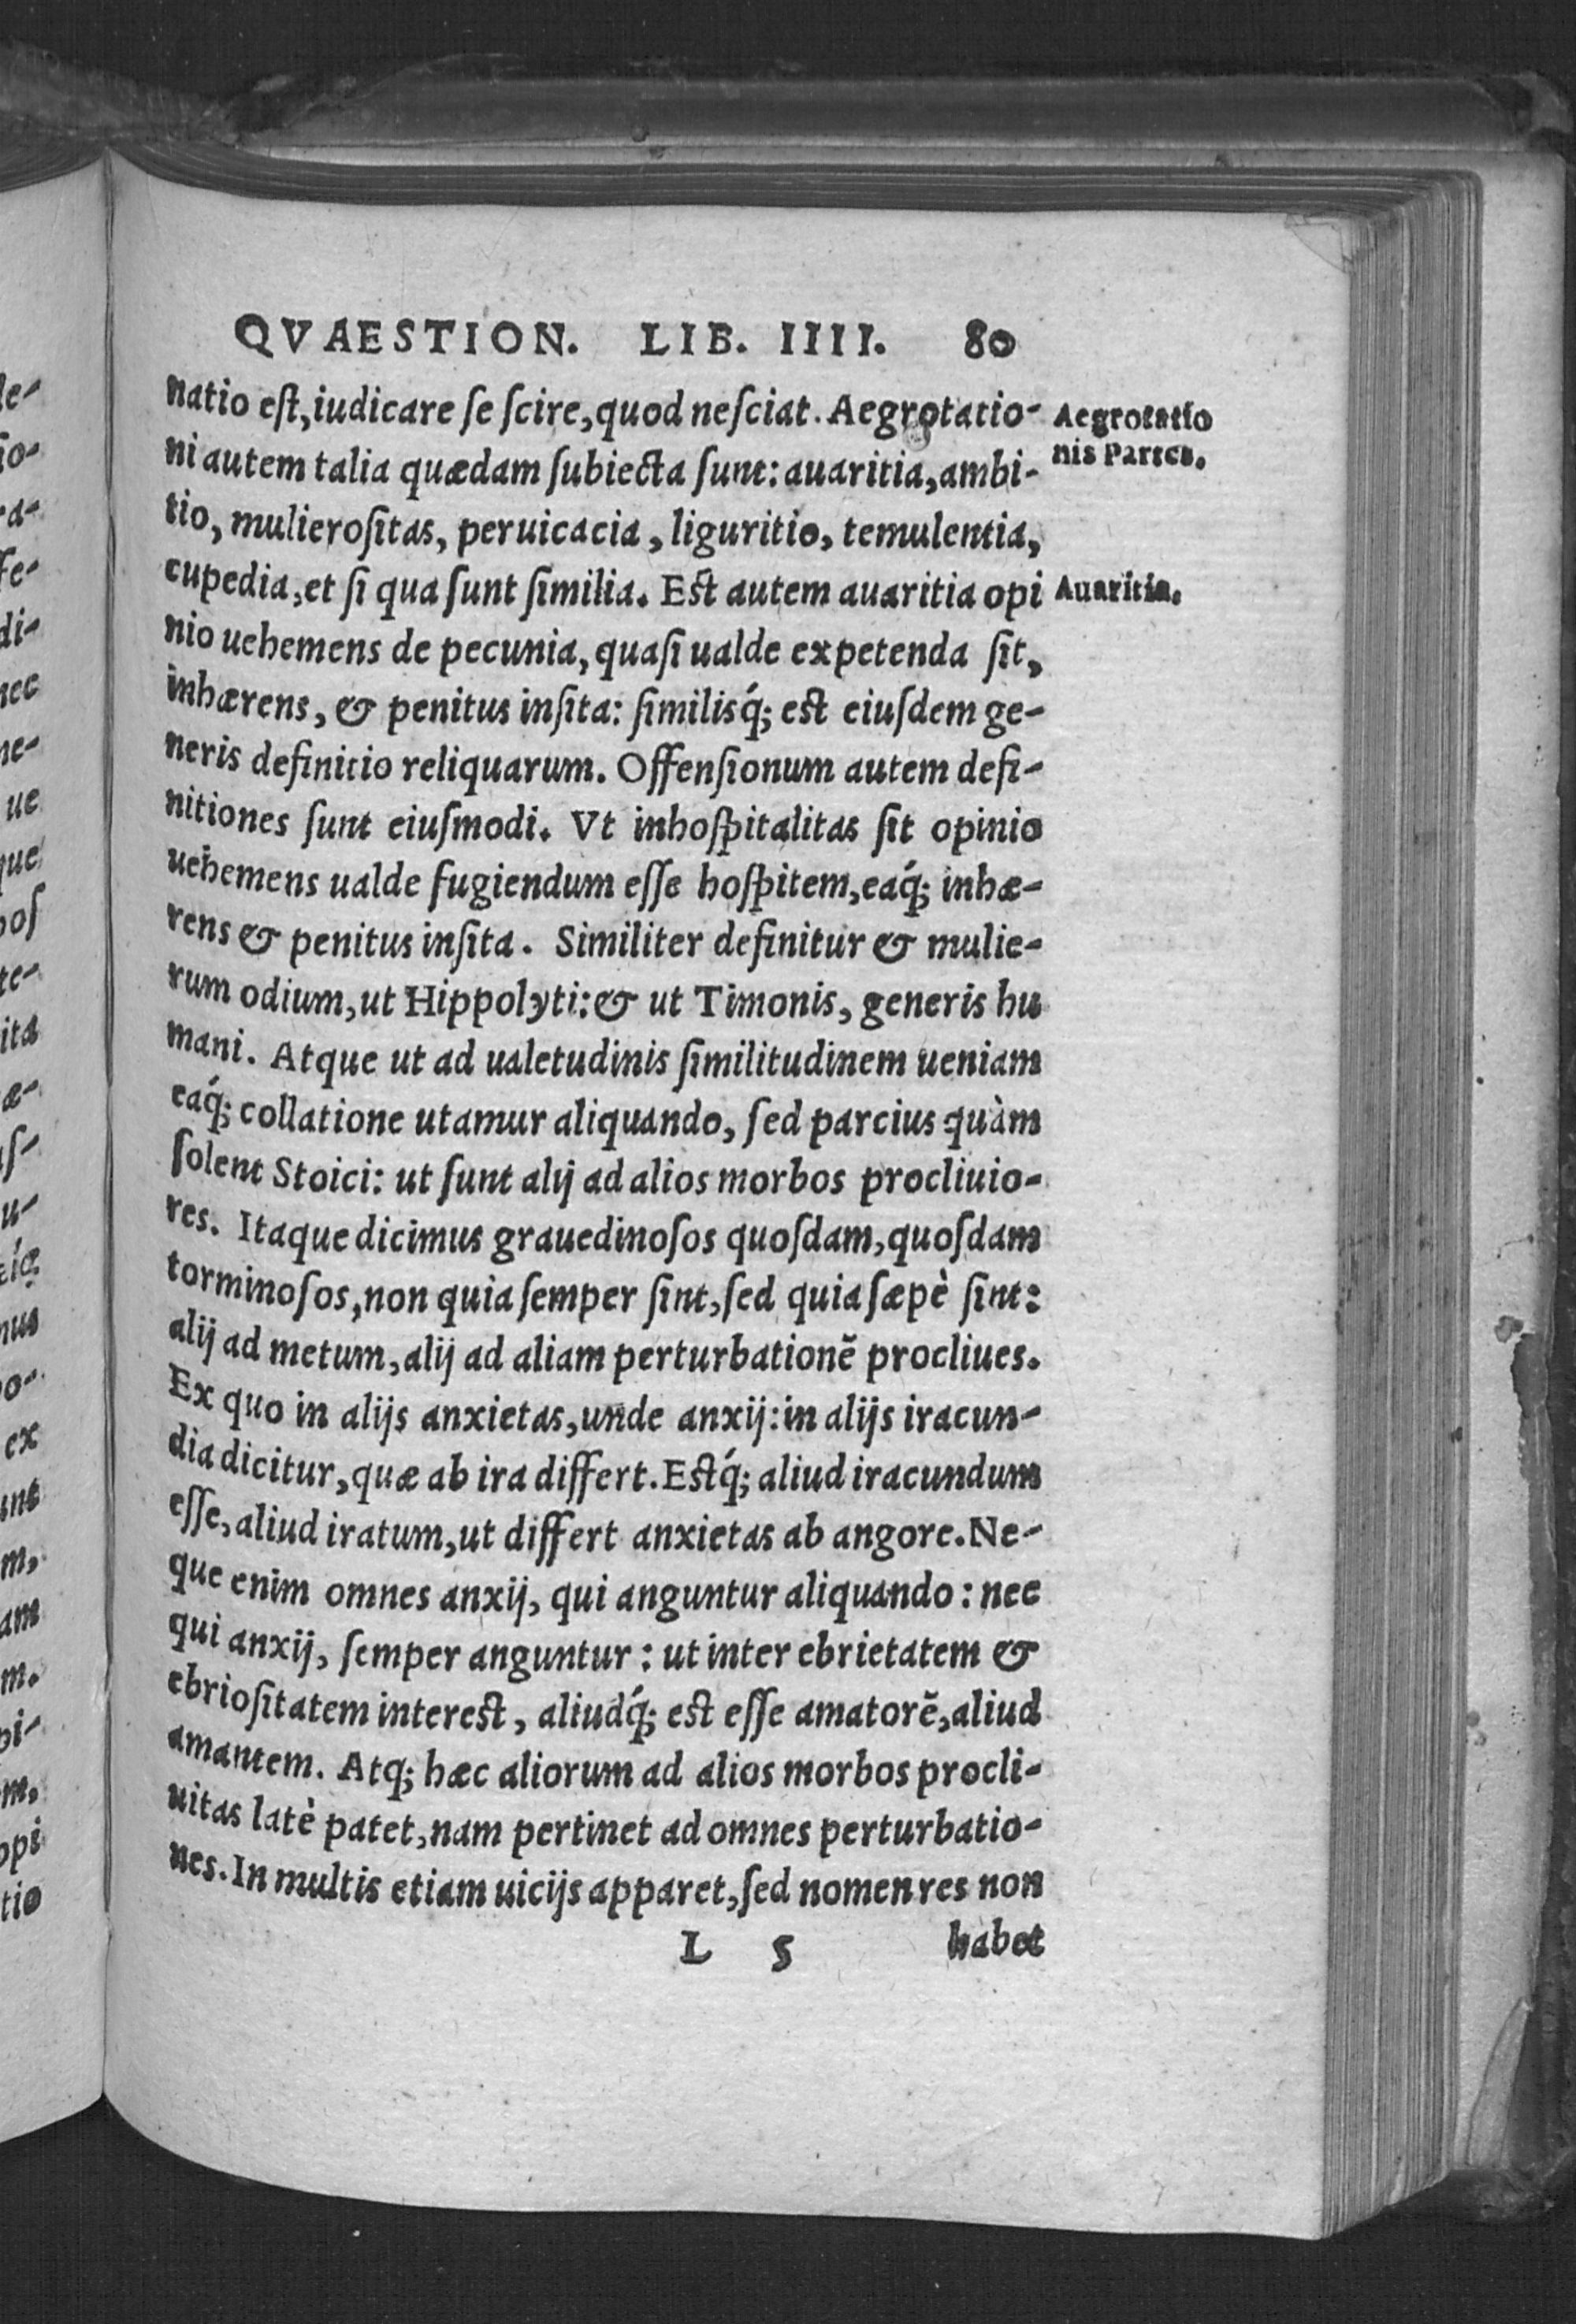 QVAESTION. LIB. IIII. 80
natio eſt, iudicare ſe ſcire, quod neſciat. Aegrotatio-
Aegrotatio
nis Partes.
ni autem talia quædam ſubiecta ſunt: auaritia, ambi-
tio, mulieroſitas, peruicacia, liguritio, temulentia,
cupedia, et ſi qua ſunt ſimilia. Eſt autem auaritia opi
Auaritia.
nio uehemens de pecunia, quaſi ualde expetenda ſit,
inhærens, & penitus inſita: ſimilisq́; eſt eiuſdem ge-
neris definitio reliquarum. Offenſionum autem defi-
nitiones ſunt eiuſmodi. Vt inhoſpitalitas ſit opinio
uehemens ualde fugiendum eſſe hoſpitem, eaq́; inhæ-
rens & penitus inſita. Similiter definitur & mulie-
rum odium, ut Hippolyti: & ut Timonis, generis hu
mani. Atque ut ad ualetudinis ſimilitudinem ueniam
eaq́; collatione utamur aliquando, ſed parcius quàm
ſolent Stoici: ut ſunt alij ad alios morbos procliuio-
res. Itaque dicimus grauedinoſos quoſdam, quoſdam
torminoſos, non quia ſemper ſint, ſed quia ſæpè ſint:
alij ad metum, alij ad aliam perturbationē procliues.
Ex quo in alijs anxietas, unde anxij: in alijs iracun-
dia dicitur, quæ ab ira differt. Eſtq́; aliud iracundum
eſſe, aliud iratum, ut differt anxietas ab angore. Ne-
que enim omnes anxij, qui anguntur aliquando: nec
qui anxij, ſemper anguntur: ut inter ebrietatem &
ebrioſitatem intereſt, aliudq́; eſt eſſe amatorē, aliud
amantem. Atq; hæc aliorum ad alios morbos procli-
uitas latè patet, nam pertinet ad omnes perturbatio-
nes. In multis etiam uicijs apparet, ſed nomen res non
L 5 habet